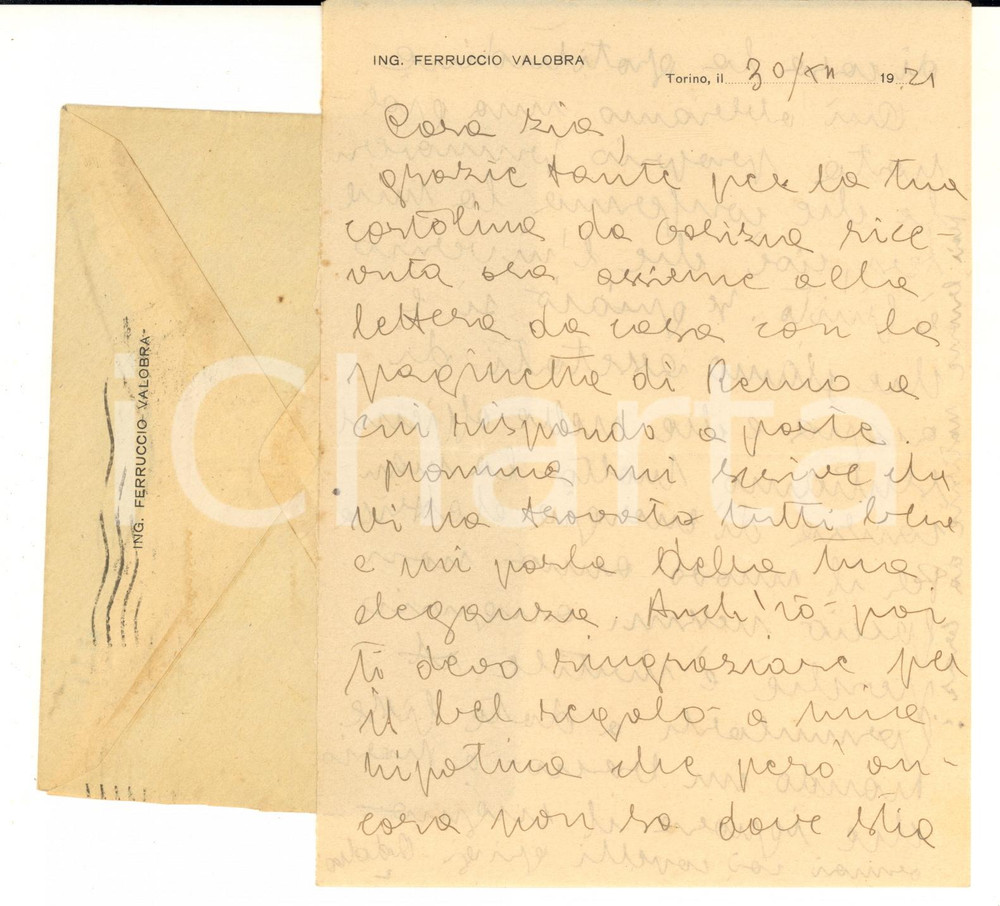 ING. FERRUCCIO VALOBRA
Torino, il 30/XII 1921
Cara zia,
grazie tante per la tua
cartolina da Gorizia rice-
vuta ora assieme alla
lettera da casa con la
paginetta di Remo a
cui rispondo a parte.
Mamma mi scrive che
vi ha trovato tutti bene
e mi parla della tua
eleganza. Anch'io poi
ti devo ringraziare per
il bel regalo a mia
nipotina che però an-
cora non so dove stia
ING. FERRUCCIO VALOBRA
iCharta